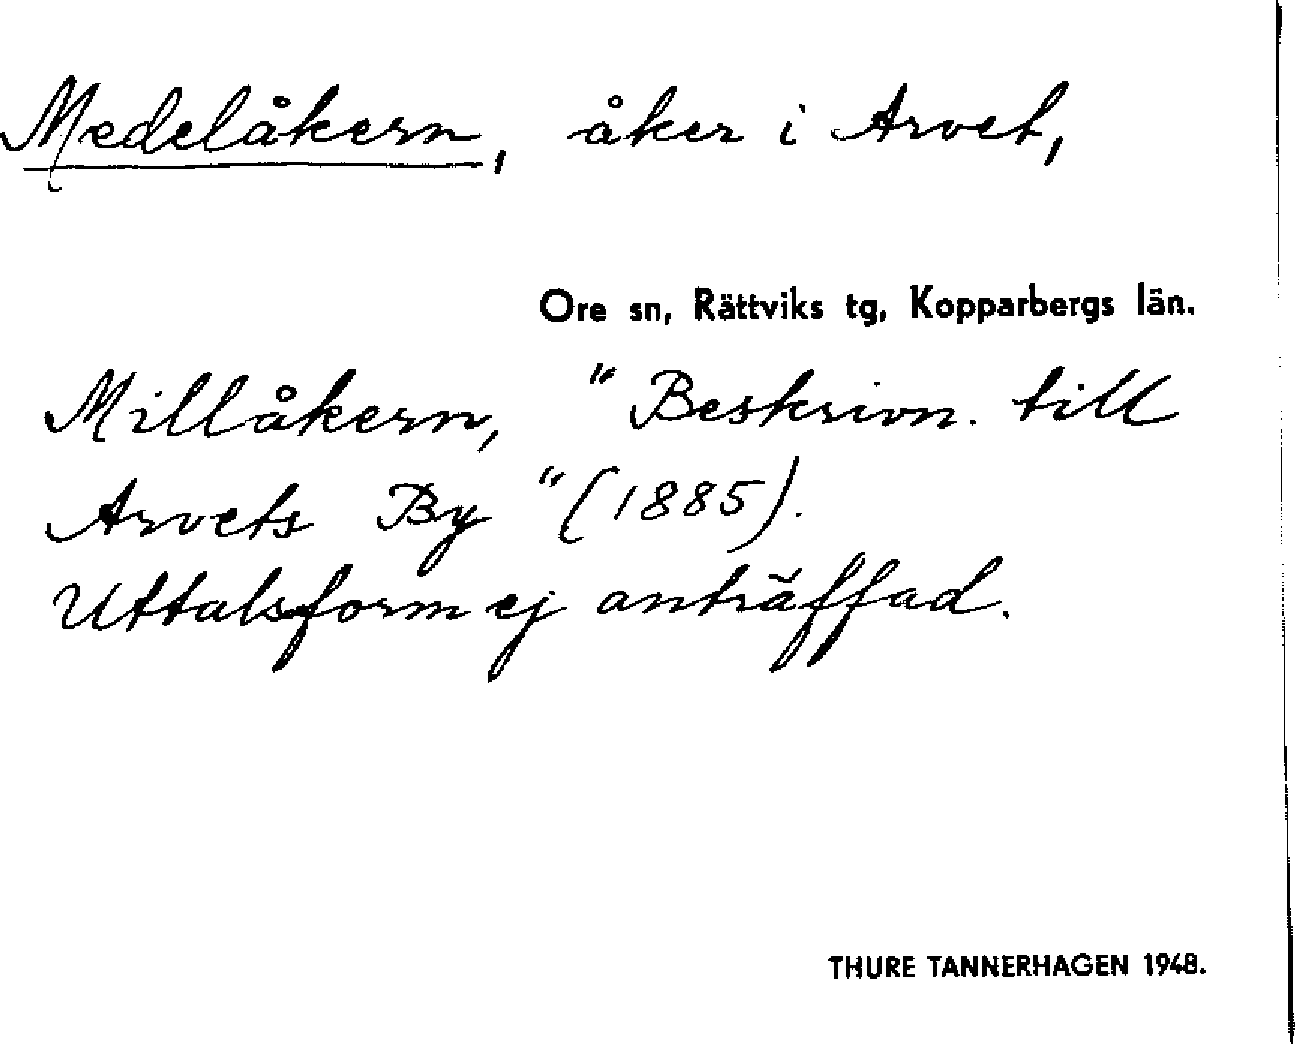 Medelåkern, åker i Arvet,
Ore sn, Rättviks tg, Kopparbergs län.
Millåkern, "Beskrivn. till
Arvets By" (1885).
Uttalsform ej anträffad.
THURE TANNERHAGEN 1948.